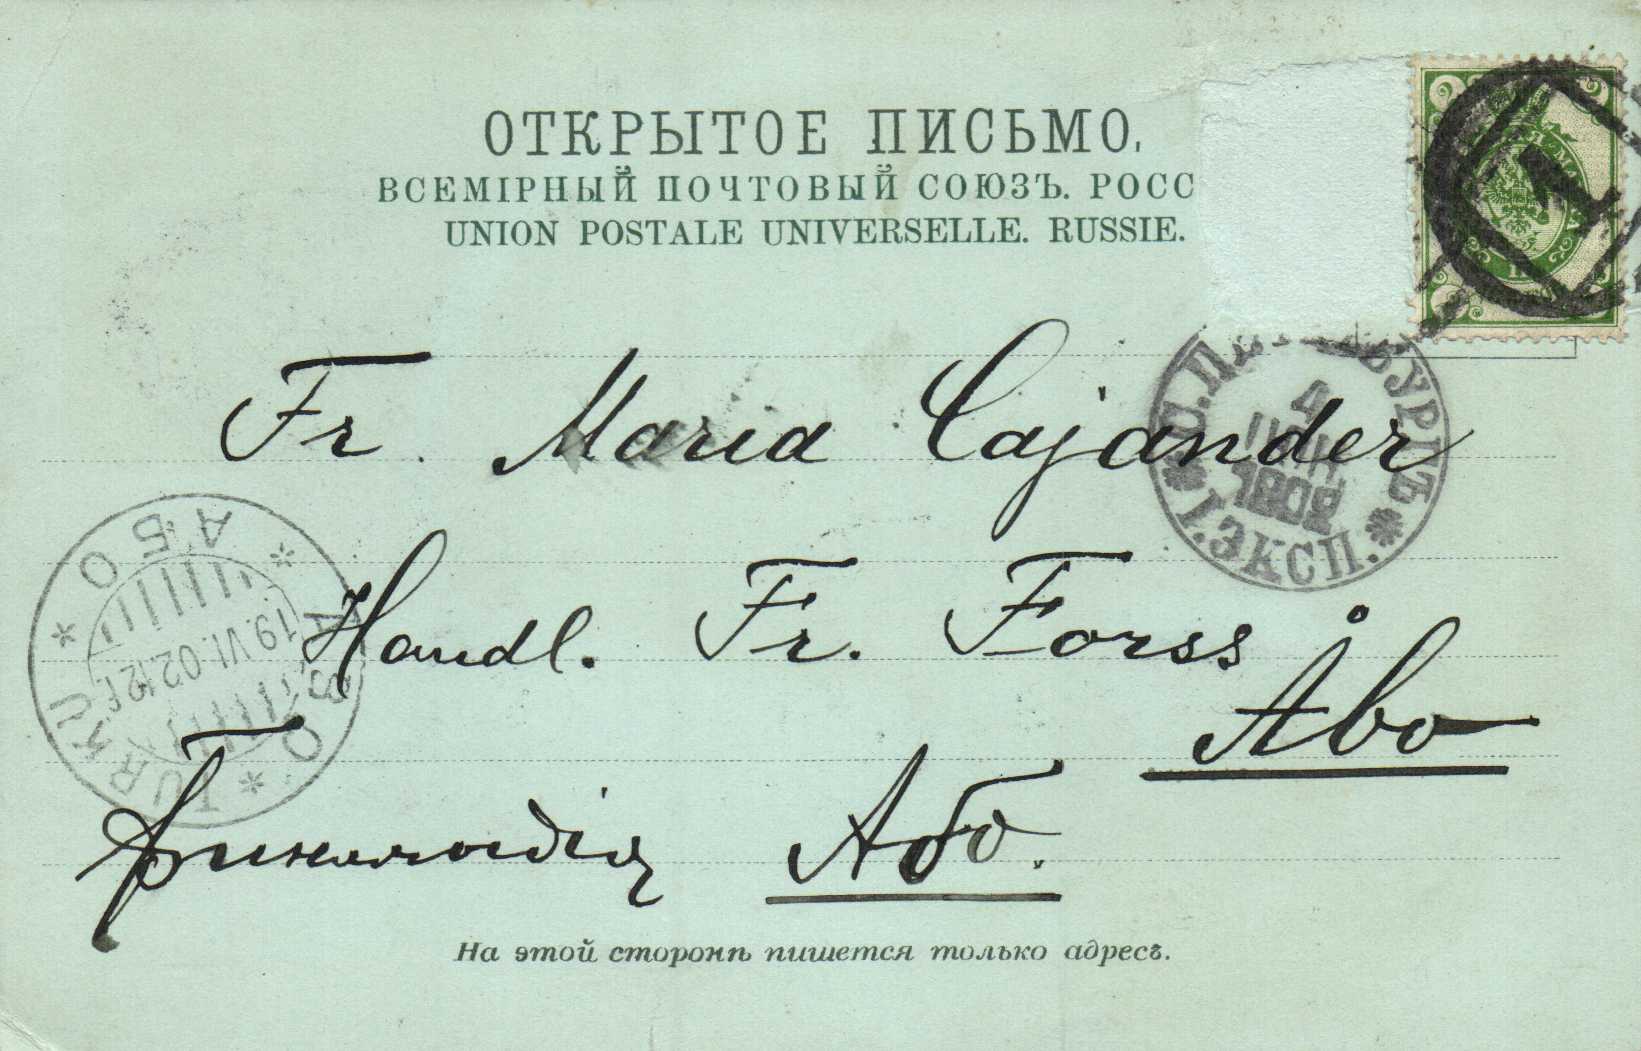 ОТКРЫТОЕ ПИСЬМО.
ВСЕМІРНЫЙ ПОЧТОВЫЙ СОЮЗЪ. РОСС
UNION POSTALE UNIVERSELLE. RUSSIE.
1
С.ПЕТЕРБУРГЪ
4
1902
1.ЭКСП.
Fr. Maria Cajander
Handl. Fr. Forss
Åbo
Финляндія Або.
АБО
ÅBO
TURKU
19.VI.02.12
На этой сторонѣ пишется только адресъ.